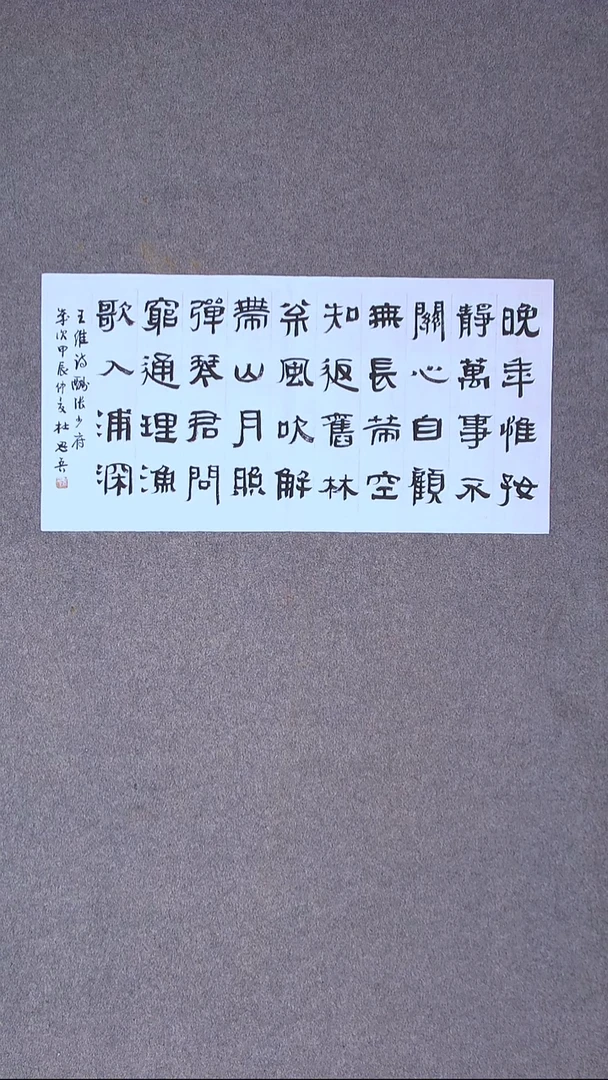 晚年惟好
靜萬事不
關心自顧
無長策空
知返舊林
枀風吹解
帶山月照
彈琴君問
窮通理漁
歌入浦深
王維詩酬張少府
歲次甲辰仲夏杜